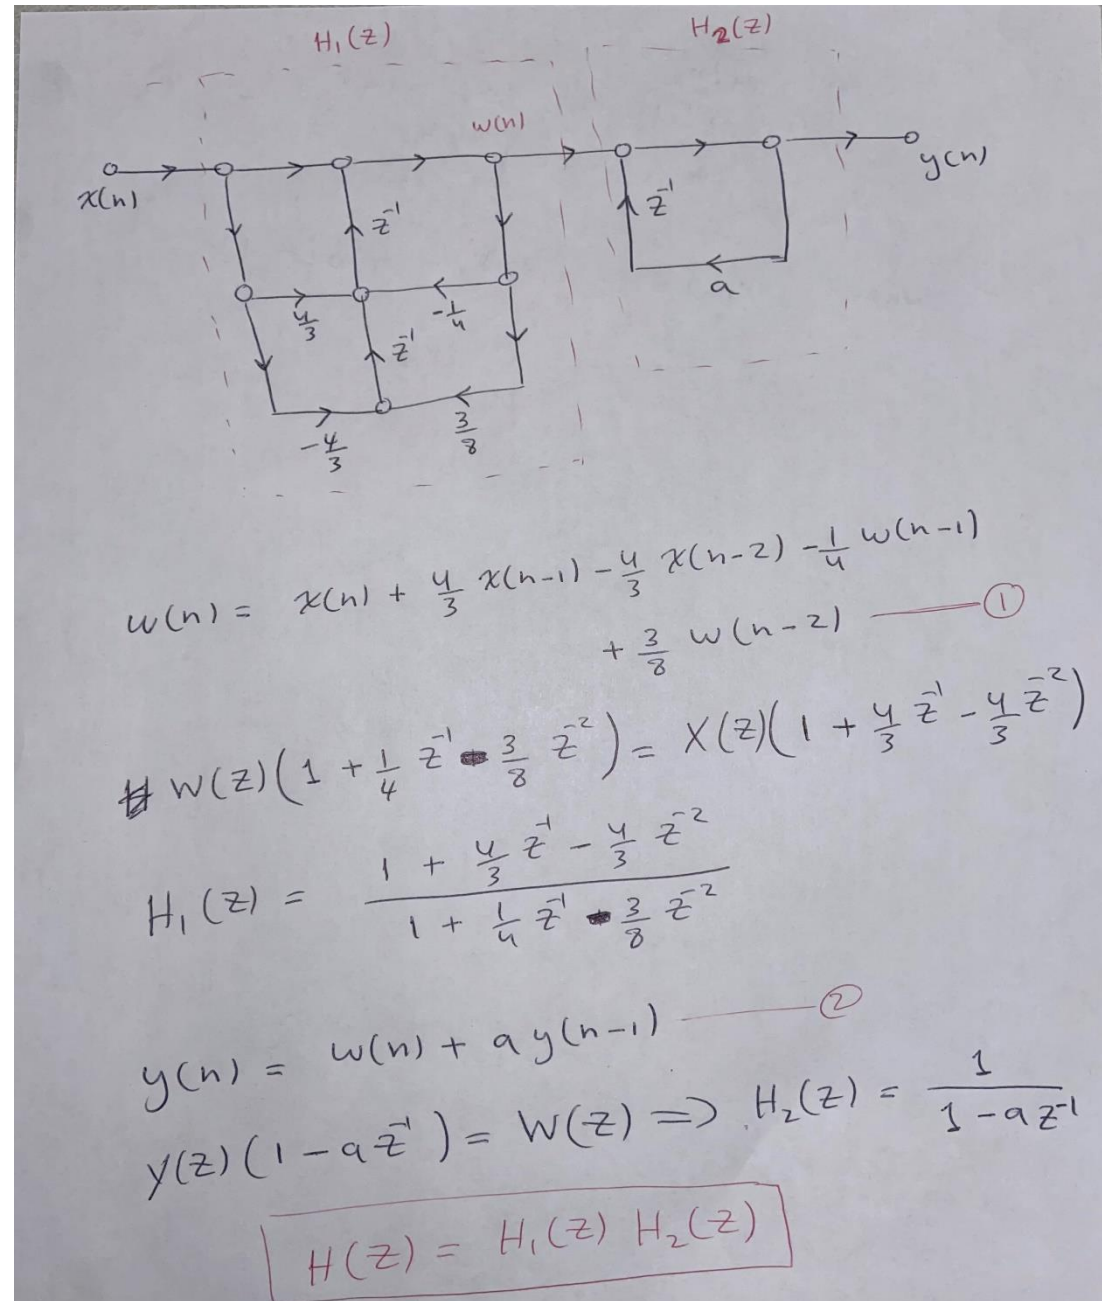 H₁(z) H₂(z)
w(n)
x(n) y(n)
z⁻¹ z⁻¹
4/3 -1/4 a
z⁻¹
-4/3 3/8
w(n) = x(n) + 4/3 x(n-1) - 4/3 x(n-2) - 1/4 w(n-1)
+ 3/8 w(n-2) ——— ①
W(z)(1 + 1/4 z⁻¹ - 3/8 z⁻²) = X(z)(1 + 4/3 z⁻¹ - 4/3 z⁻²)
H₁(z) = (1 + 4/3 z⁻¹ - 4/3 z⁻²) / (1 + 1/4 z⁻¹ - 3/8 z⁻²)
y(n) = w(n) + a y(n-1) ——— ②
Y(z)(1 - a z⁻¹) = W(z) => H₂(z) = 1 / (1 - a z⁻¹)
H(z) = H₁(z) H₂(z)